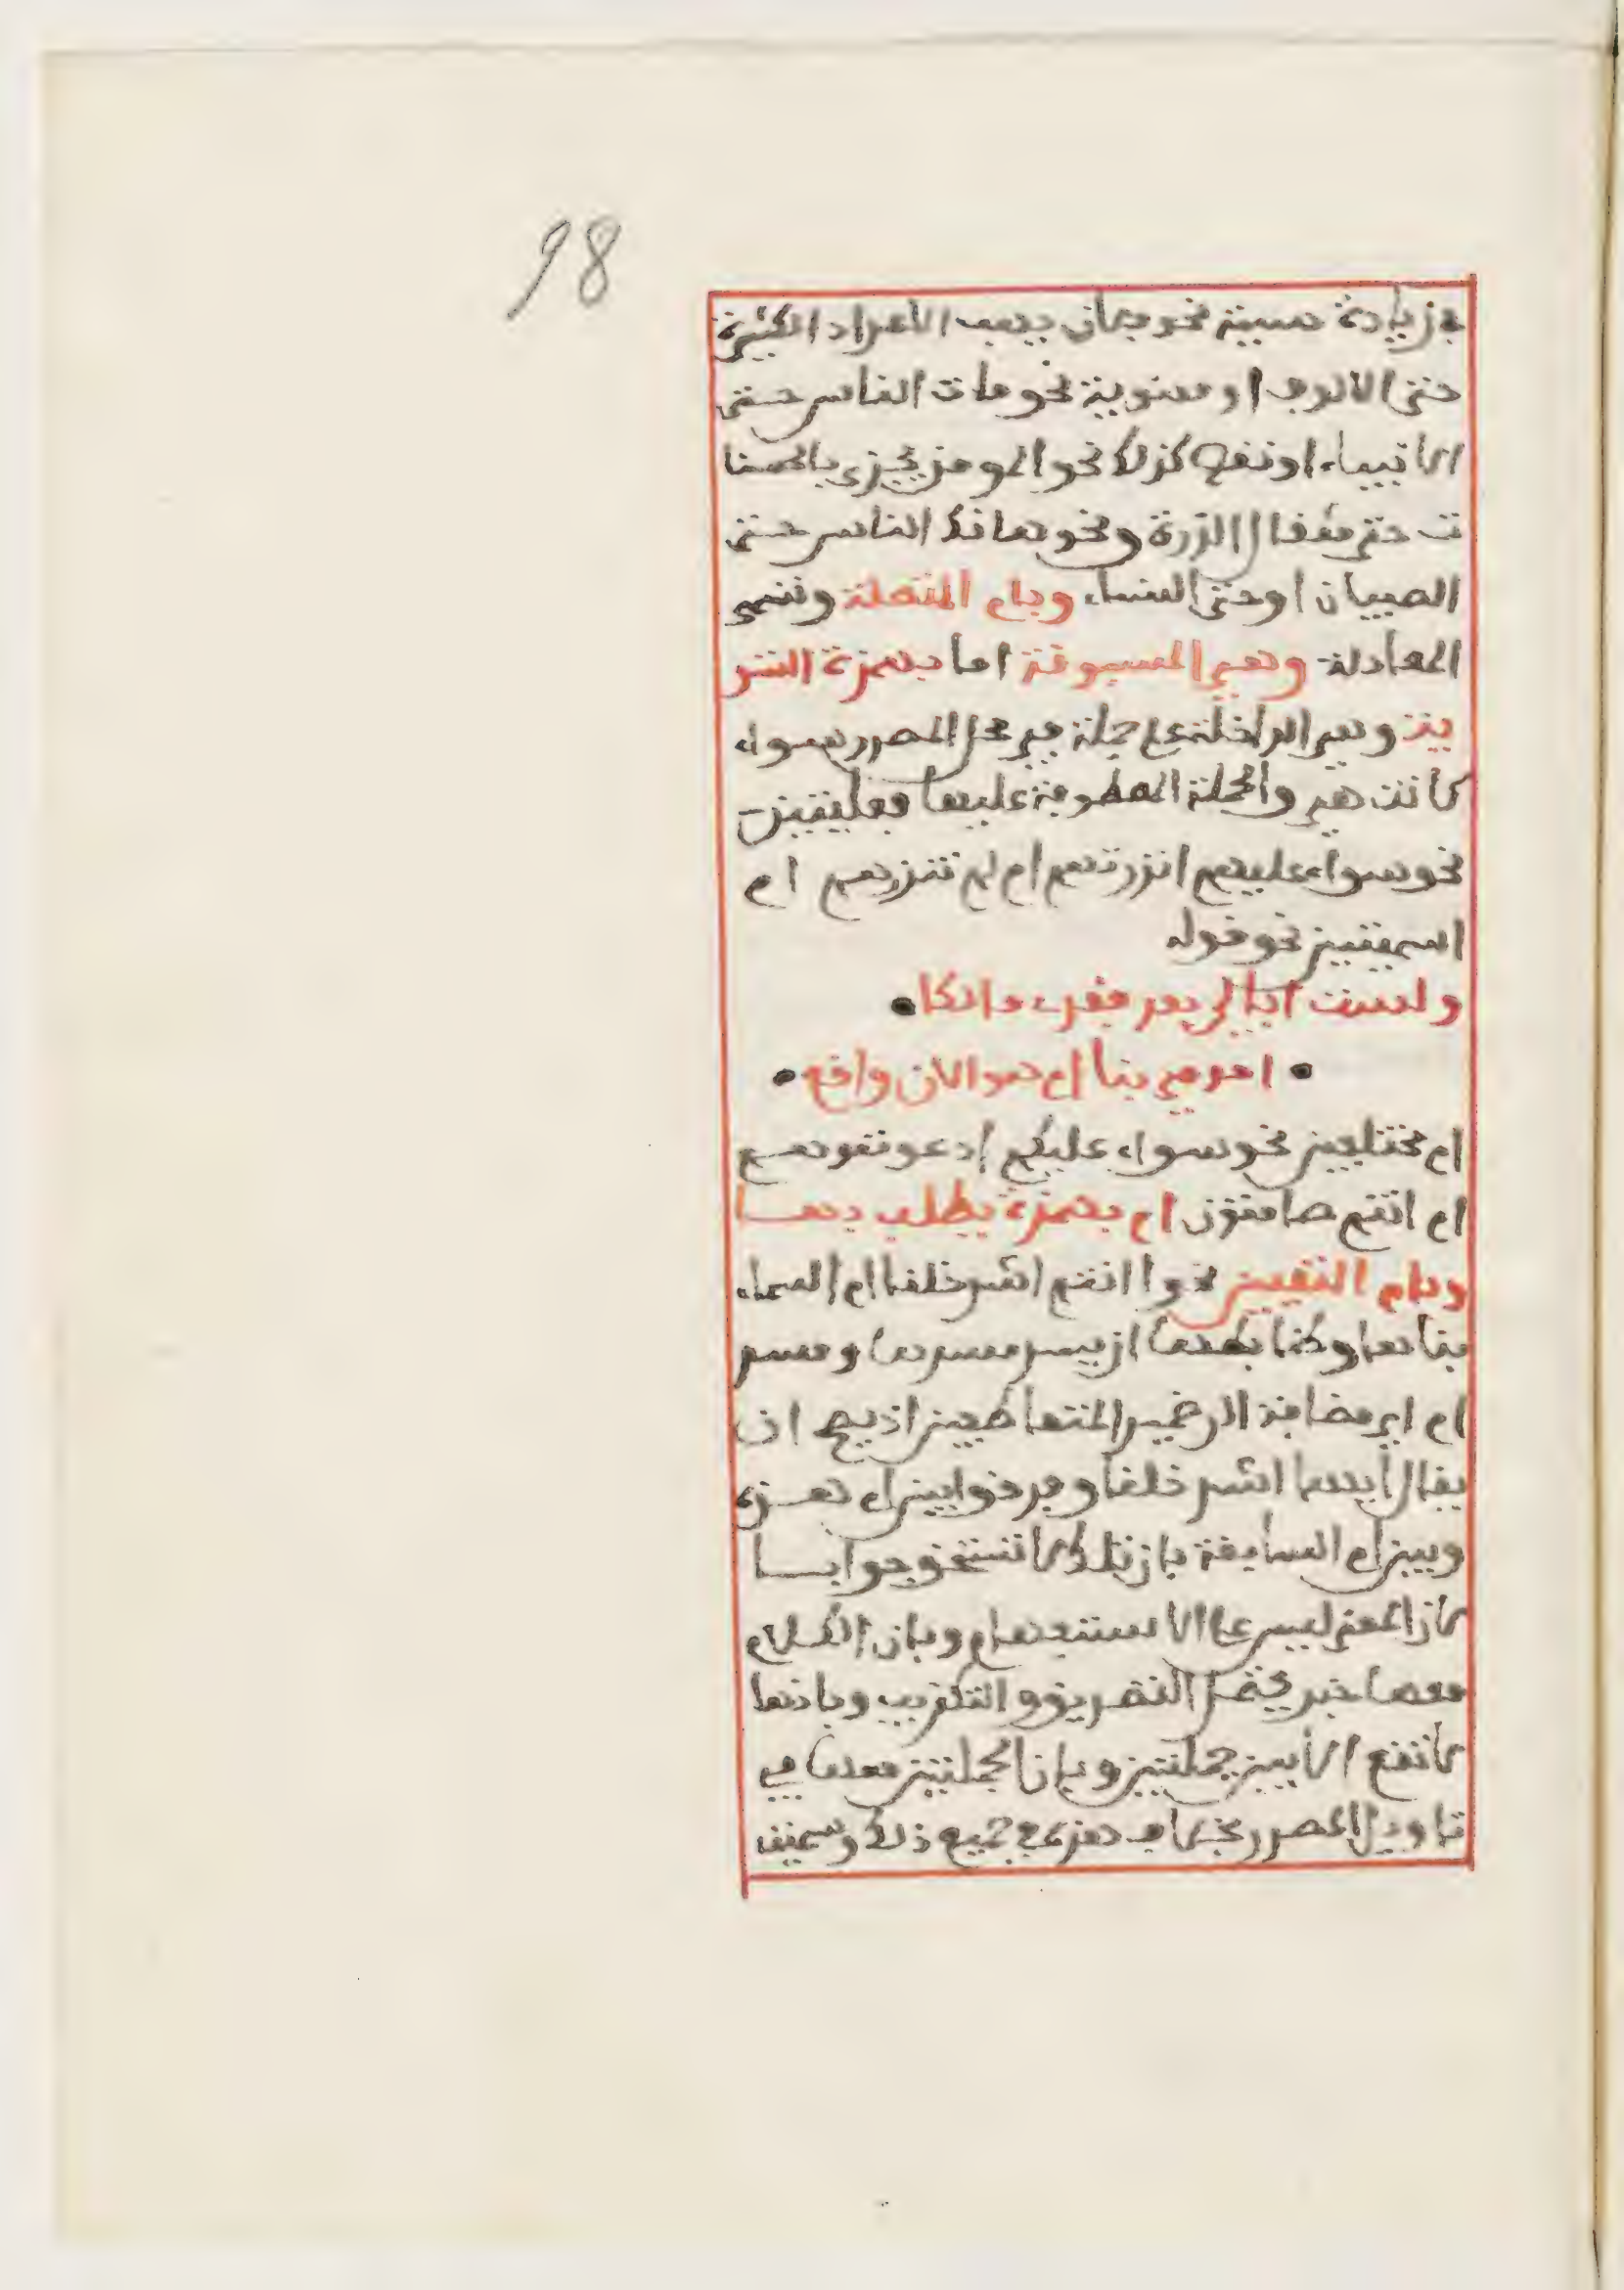 98
في زيادة حسية نحو فلان يهب الاعداد الكثيرة
حتى الالوف او معنوية نحو مات الناس حتى
الانبياء او نقص كذلك نحو المومن يجزى بالحسنا
ت حتى مثقال الذرة ونحو هانك الناس حتى
الصبيان او حتى النساء وبام المتصلة وتسمى
المعادلة وهي المسبوقة اما بهمزة التسو
ية وهي الداخلة على جملة في محل المصدر سواء
كانت هي والجملة المعطوفة عليها فعليتين
نحو سواء عليهم انذرتهم ام لم تنذرهم ام
اسميتين نحو قوله
ولست ابالي بعد فقدي مالكا
اموتي ناء ام هو الان واقع
ام مختلفين نحو سواء عليكم ادعوتموهم
ام انتم صامتون ام بهمزة يطلب بها
وبام التعيين نحو اانتم اشد خلقا ام السماء
بناها
ام اي
يقال ايهما اشد خلقا وفرقوا بين ام هذه
وبين ام السابقة بان تلك لا تستحق جوابا
لان المعنى ليس على الاستفهام وبان الكلام
معها خبر يحتمل التصديق والتكذيب وبانها
لا تقع الا بين جملتين وبان الجملتين معها في
تاويل المصدر بخلاف هذه في جميع ذلك وسميت